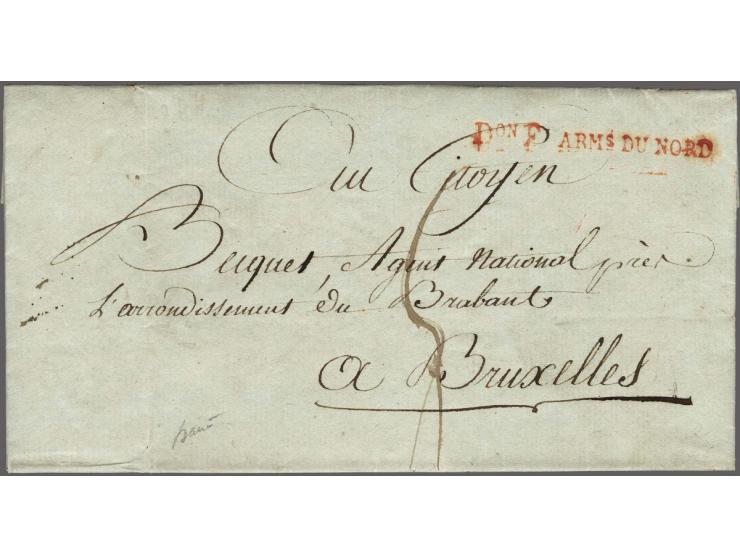 DON F ARMS DU NORD
Au Citoyen
Becquet, Agent National près
L'arrondissement du Brabant
a Bruxelles
5